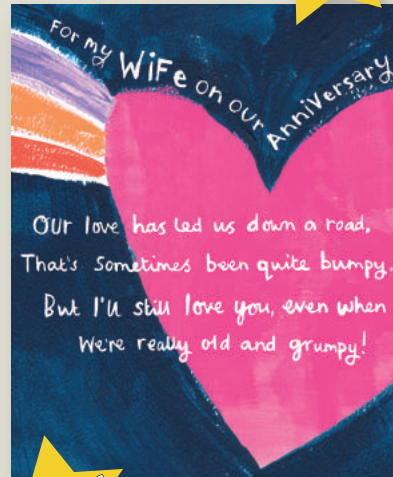 For my WiFe on our Anniversary
Our love has led us down a road,
That's sometimes been quite bumpy.
But I'll still love you, even when
We're really old and grumpy!